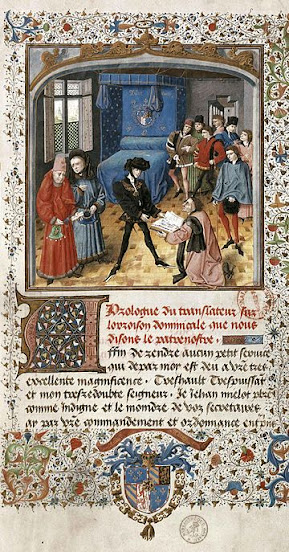 Prologue du translateur sur
loroison dominicale que nous
disons le patrenostre
Affin de rendre aucun petit seruice
que de par moy est deu a vostre tres
excellente magnificence. Treshault Trespuissat
et mon tresredoubte seigneur. Je Jehan melot pbre
comme indigne et le moindre de voz secretaires
ay par vre commandement et ordonnance